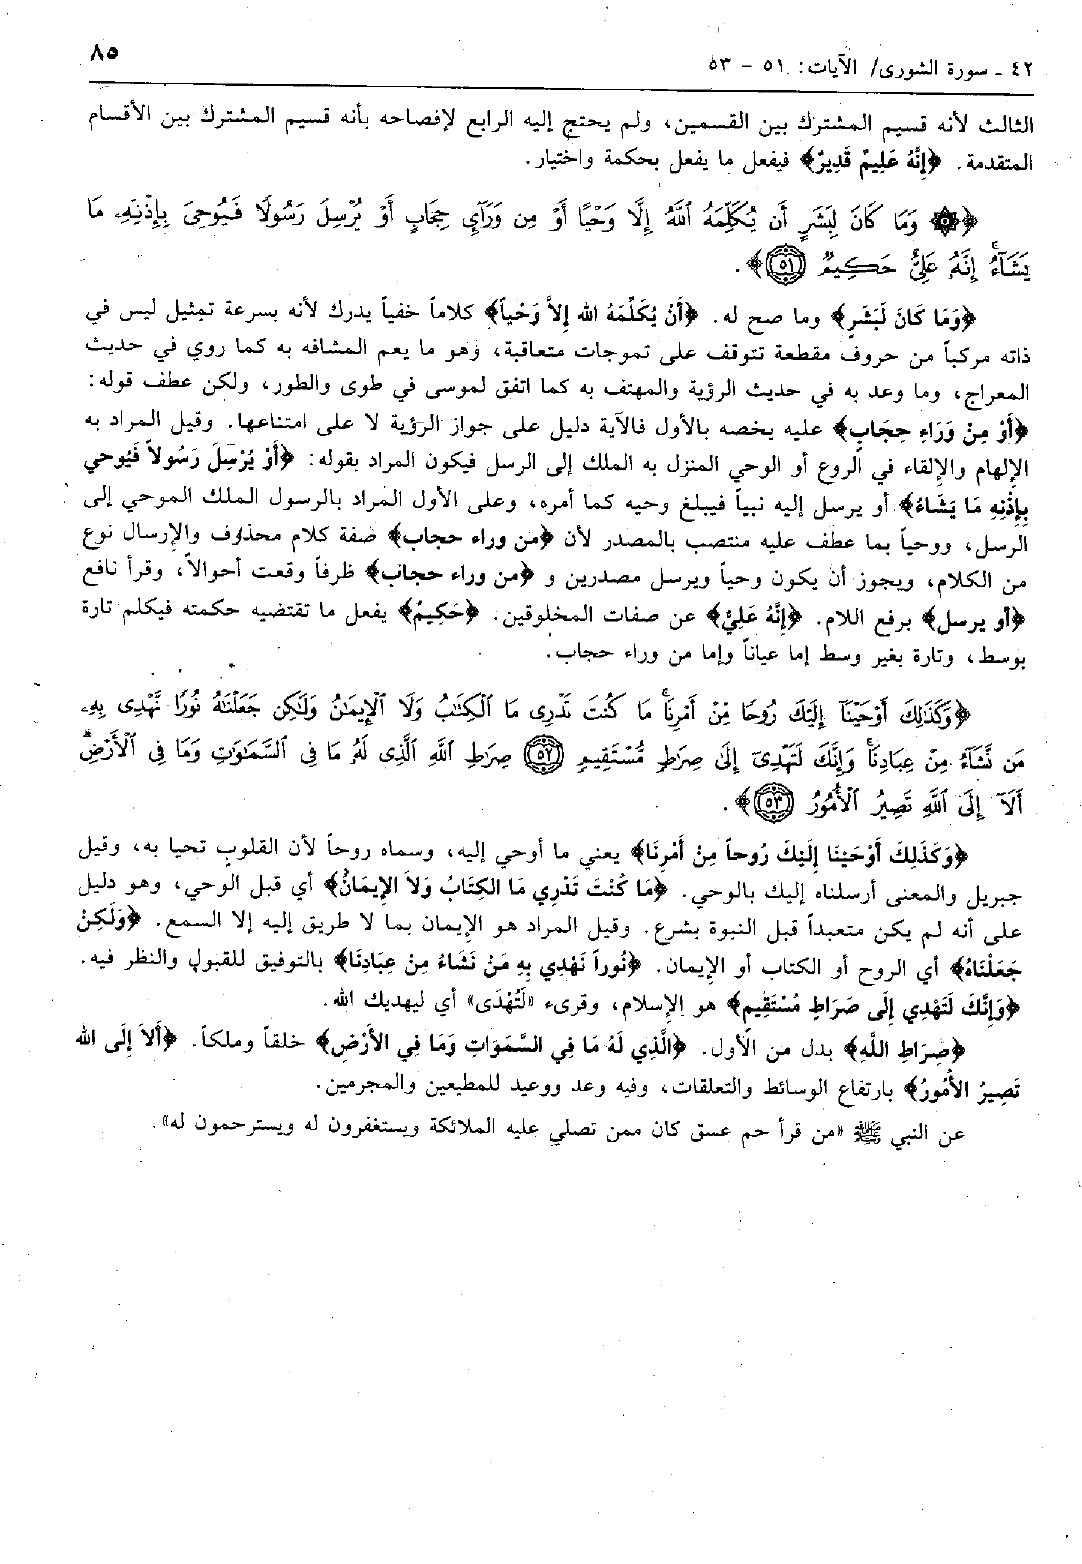 ٤٢ - سورة الشورى/ الآيات: ٥١ - ٥٣
٨٥
الثالث لأنه قسيم المشترك بين القسمين، ولم يحتج إليه الرابع لإفصاحه بأنه قسيم المشترك بين الأقسام
المتقدمة. ﴿إِنَّهُ عَلِيمٌ قَدِيرٌ﴾ فيفعل ما يفعل بحكمة واختيار.
﴿۞ وَمَا كَانَ لِبَشَرٍ أَن يُكَلِّمَهُ ٱللَّهُ إِلَّا وَحْيًا أَوْ مِن وَرَآيِٕ حِجَابٍ أَوْ يُرْسِلَ رَسُولًا فَيُوحِىَ بِإِذْنِهِۦ مَا
يَشَآءُ ۚ إِنَّهُۥ عَلِىٌّ حَكِيمٌ ﴿٥١﴾﴾.
﴿وَمَا كَانَ لَبَشَرٍ﴾ وما صح له. ﴿أَنْ يُكَلِّمَهُ الله إِلاَّ وَحْياً﴾ كلاماً خفياً يدرك لأنه بسرعة تمثيل ليس في
ذاته مركباً من حروف مقطعة تتوقف على تموجات متعاقبة، وهو ما يعم المشافه به كما روي في حديث
المعراج، وما وعد به في حديث الرؤية والمهتف به كما اتفق لموسى في طوى والطور، ولكن عطف قوله:
﴿أَوْ مِنْ وَرَاءِ حِجَابٍ﴾ عليه يخصه بالأول فالآية دليل على جواز الرؤية لا على امتناعها. وقيل المراد به
الإلهام والإلقاء في الروع أو الوحي المنزل به الملك إلى الرسل فيكون المراد بقوله: ﴿أَوْ يُرْسِلَ رَسُولاً فَيُوحي
بِإِذْنِهِ مَا يَشَاءُ﴾ أو يرسل إليه نبياً فيبلغ وحيه كما أمره، وعلى الأول المراد بالرسول الملك الموحي إلى
الرسل، ووحياً بما عطف عليه منتصب بالمصدر لأن ﴿من وراء حجاب﴾ صفة كلام محذوف والإرسال نوع
من الكلام، ويجوز أن يكون وحياً ويرسل مصدرين و ﴿من وراء حجاب﴾ ظرفاً وقعت أحوالاً، وقرأ نافع
﴿أو يرسل﴾ برفع اللام. ﴿إِنَّهُ عَلِيٌّ﴾ عن صفات المخلوقين. ﴿حَكِيمٌ﴾ يفعل ما تقتضيه حكمته فيكلم تارة
بوسط، وتارة بغير وسط إما عياناً وإما من وراء حجاب.
﴿وَكَذَٰلِكَ أَوْحَيْنَآ إِلَيْكَ رُوحًا مِّنْ أَمْرِنَا ۚ مَا كُنتَ تَدْرِى مَا ٱلْكِتَٰبُ وَلَا ٱلْإِيمَٰنُ وَلَٰكِن جَعَلْنَٰهُ نُورًا نَّهْدِى بِهِۦ
مَن نَّشَآءُ مِنْ عِبَادِنَا ۚ وَإِنَّكَ لَتَهْدِىٓ إِلَىٰ صِرَٰطٍ مُّسْتَقِيمٍ ﴿٥٢﴾ صِرَٰطِ ٱللَّهِ ٱلَّذِى لَهُۥ مَا فِى ٱلسَّمَٰوَٰتِ وَمَا فِى ٱلْأَرْضِ ۗ
أَلَآ إِلَى ٱللَّهِ تَصِيرُ ٱلْأُمُورُ ﴿٥٣﴾﴾.
﴿وَكَذَلِكَ أَوْحَيْنَا إِلَيْكَ رُوحاً مِنْ أَمْرِنَا﴾ يعني ما أوحي إليه، وسماه روحاً لأن القلوب تحيا به، وقيل
جبريل والمعنى أرسلناه إليك بالوحي. ﴿مَا كُنْتَ تَدْرِي مَا الكِتَابُ وَلاَ الإِيمَانُ﴾ أي قبل الوحي، وهو دليل
على أنه لم يكن متعبداً قبل النبوة بشرع. وقيل المراد هو الإيمان بما لا طريق إليه إلا السمع. ﴿وَلَكِنْ
جَعَلْنَاهُ﴾ أي الروح أو الكتاب أو الإيمان. ﴿نُوراً نَهْدِي بِهِ مَنْ نَشَاءُ مِنْ عِبَادِنَا﴾ بالتوفيق للقبول والنظر فيه.
﴿وَإِنَّكَ لَتَهْدِي إِلَى صَرَاطٍ مُسْتَقِيمٍ﴾ هو الإسلام، وقرىء «لَتُهْدَى» أي ليهديك الله.
﴿صِرَاطِ اللَّهِ﴾ بدل من الأول. ﴿الَّذِي لَهُ مَا فِي السَّمَوَاتِ وَمَا فِي الأَرْضِ﴾ خلقاً وملكاً. ﴿أَلاَ إِلَى الله
تَصِيرُ الأُمُورُ﴾ بارتفاع الوسائط والتعلقات، وفيه وعد ووعيد للمطيعين والمجرمين.
عن النبي ﷺ «من قرأ حم عسق كان ممن تصلي عليه الملائكة ويستغفرون له ويسترحمون له».